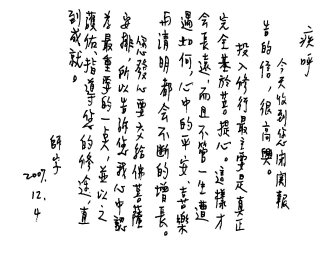 疾呼
今天收到您閉關報
告的信，很高興。
投入修行最主要是真正
完全基於菩提心。這樣才
會長遠，而且不管一生遭
遇如何，心中的平安、喜樂
與清明都會不斷的增長。
您發心要交給佛菩薩
安排，所以告訴您我心中認
為最重要的一点，並以之
護佑、指導您的修途，直
到成就。
師字
2007.
12.
4